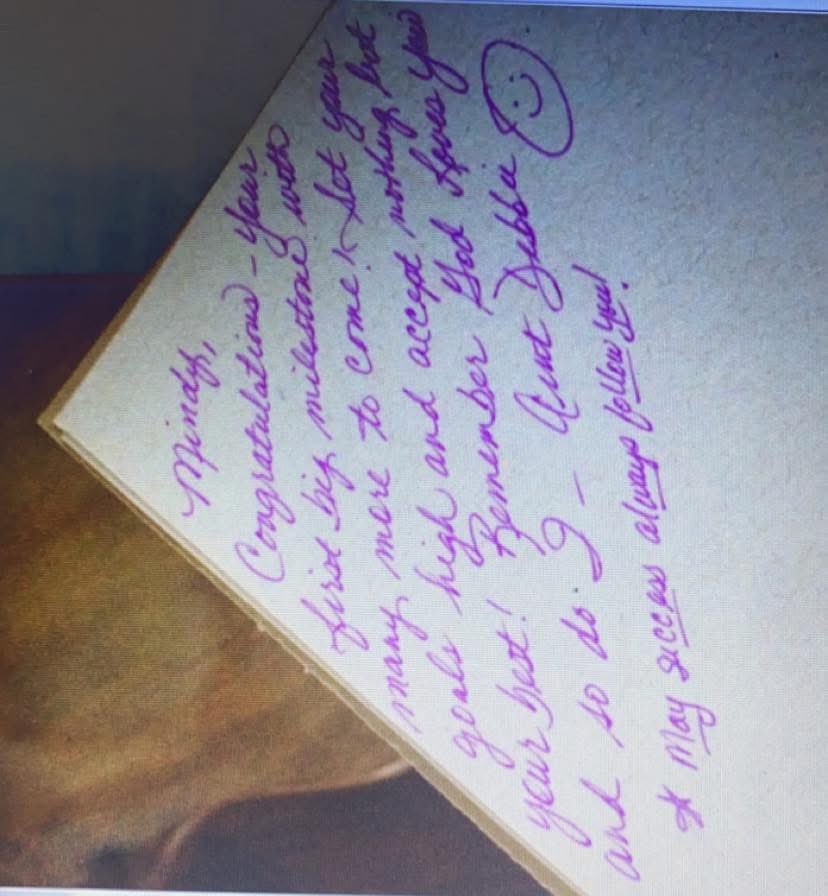 Mindy,
Congratulations - your
first big milestone with
many more to come! Set your
goals high and accept nothing but
your best! Remember God Loves You
and so do I - Aunt Debbie
* May success always follow you!